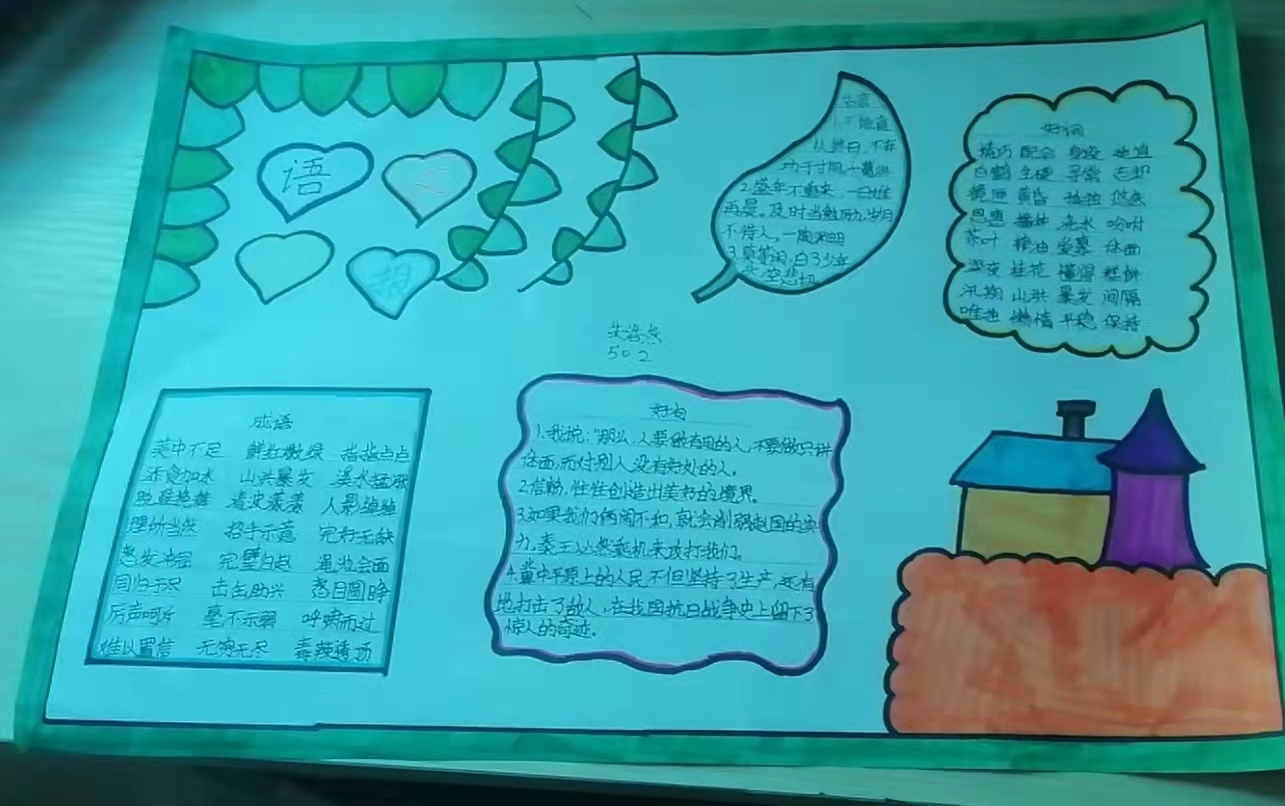 语
文
报
名言
1.不饱食
以终日,不弃
功于寸阴。—葛洪
2.盛年不重来,一日难
再晨。及时当勉励,岁月
不待人。—陶渊明
3.莫等闲,白了少年
头,空悲切
好词
精巧 配合 身段 适宜
白鹤 生硬 寻常 忘却
镜匣 黄昏 孤独 悠然
恩惠 播种 浇水 吩咐
茶叶 榨油 爱慕 体面
深夜 桂花 懂得 糕饼
汛期 山洪 暴发 间隔
唯独 懒惰 平稳 保持
朱浩然
502
成语
美中不足 鲜红嫩绿 指指点点
添食加水 山洪暴发 溪水猛涨
跳跃 清波漾漾 人影绰绰
理所当然 招手示范 完好无缺
怒发冲冠 完璧归赵 渑池会面
同归于尽 击缶助兴 怒目圆睁
厉声呵斥 毫不示弱 呼啸而过
难以置信 无穷无尽
好句
1.我说:“那么,人要做有用的人,不要做只讲
体面,而对别人没有好处的人。
2.信赖,往往创造出美好的境界。
3.如果我们俩闹不和,就会削弱赵国的实
力,秦王必然乘机来攻打我们。
4.冀中平原上的人民,不但坚持了生产,还有
地打击了敌人,在我国抗日战争史上留下了
惊人的奇迹。